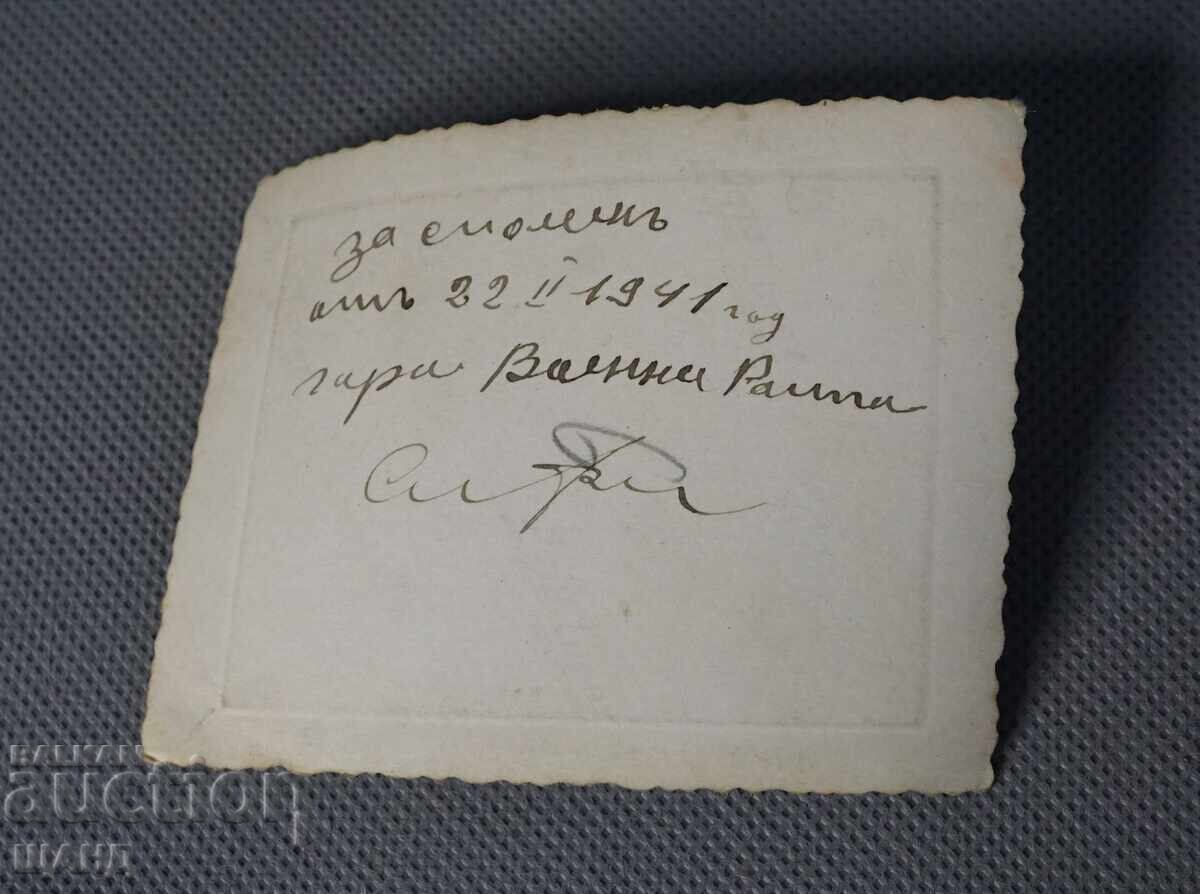 за споменъ
отъ 22 II 1941 год
гара Военна Рампа
BALKAN
auction